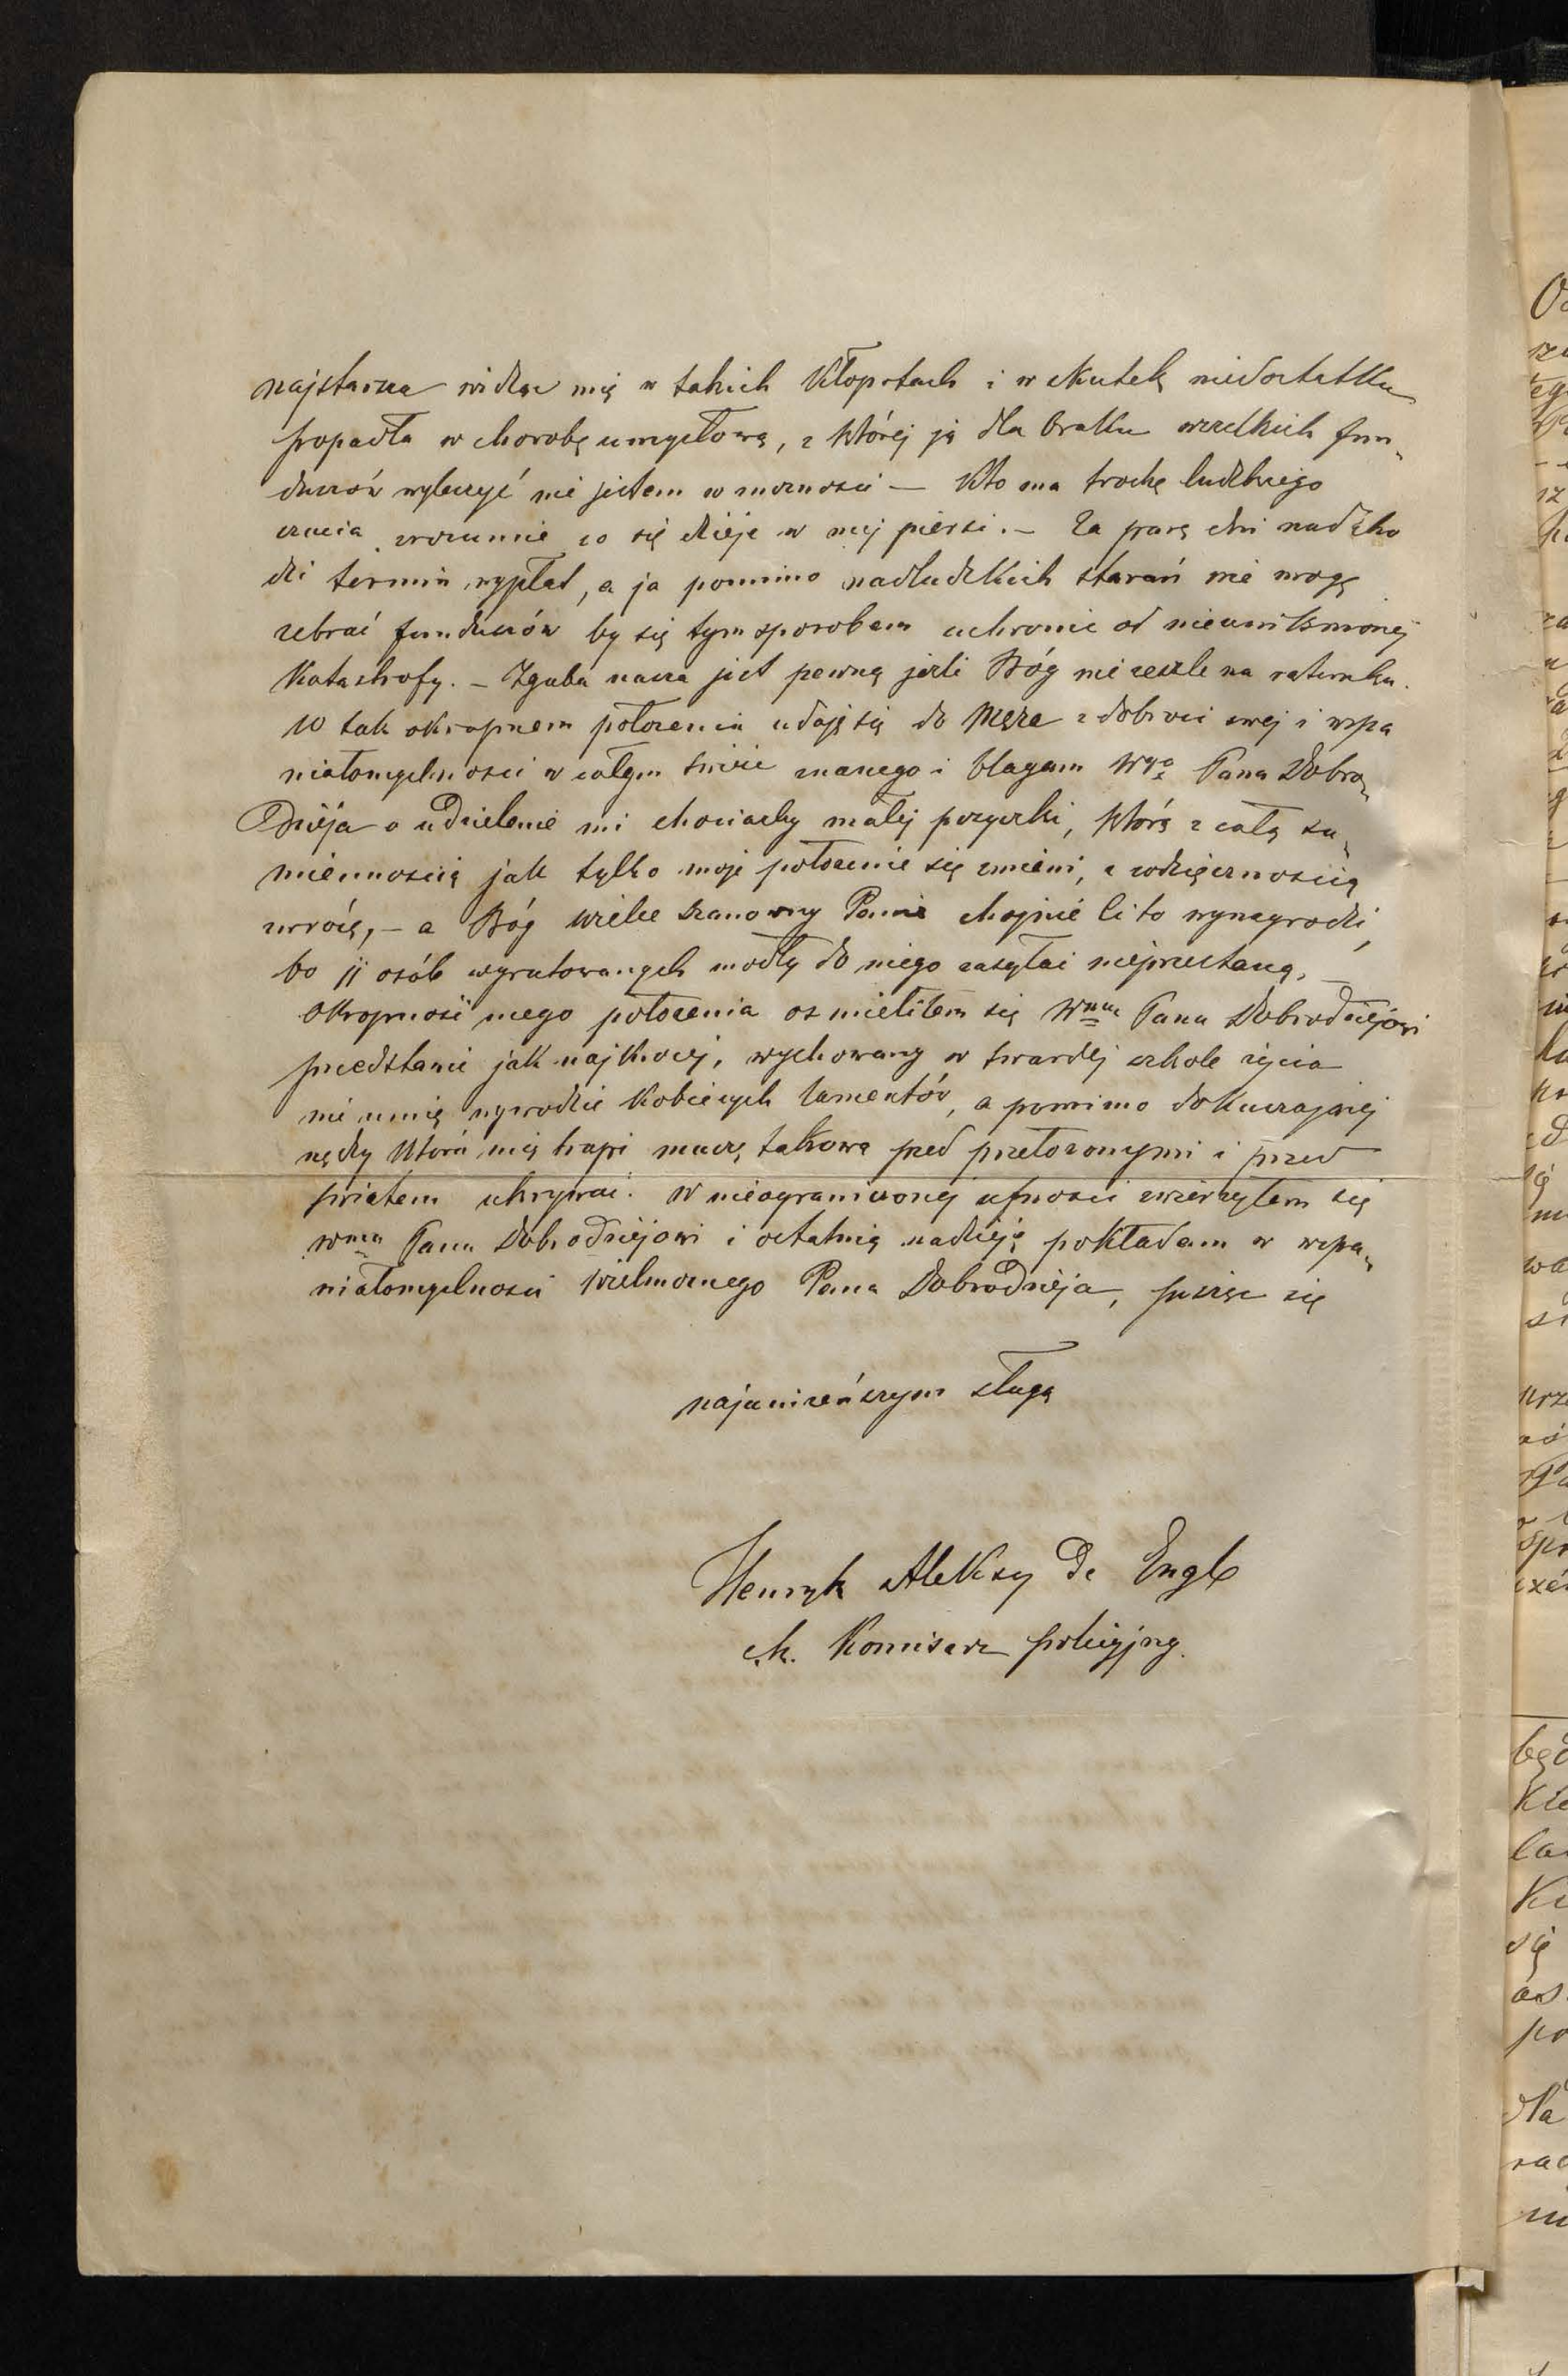 najstarsza widząc mię w takich kłopotach i w skutek niedostatku
popadła w chorobę umysłową, z której ją dla braku wszelkich fun„
duszów wyleczyć nie jestem w możności — Kto ma trochę ludzkiego
czucia zrozumie co się dzieje w mej piersi. — Za parę dni nadcho
dzi termin wypłat, a ja pomimo nadludzkich starań nie mogę
zebrać funduszów by się tym sposobem uchronić od nieuniknionej
katastrofy. — Zguba nasza jest pewną jeźli Bóg nie ześle na ratunku.
W tak okropnem położeniu udaję się do Męża z dobroci swej i wspa
niałomyślnosci w całym świecie znanego i błagam Wgo Pana Dobro„
dzieja o udzielenie mi chociażby małej pożyczki, którą z całą su„
miennoscią jak tylko moje położenie się zmieni, z wdzięcznoscią
zwrócę, — a Bóg wielce szanowny Panie hojnie Ci to wynagrodzi,
bo 11 osób wyratowanych modły do niego zasyłać nieprzestaną, —
Okropność mego położenia ośmieliłem się Wmu Panu Dobrodziejowi
przedstawić jak najkrócej, wychowany w twardej szkole życia
nie umię wywodzić kobiecych lamentów, a pomimo dokuczającej
nędzy która mię trapi muszę takową przed przełożonymi i przed
światem ukrywać. W nieograniczonej ufności zwierzyłem się
Wmu Panu Dobrodziejowi i ostatnią nadzieję pokładam w wspa„
niałomyślnosci Wielmożnego Pana Dobrodzieja, pisząc się
najuniżeńszym sługą
Henryk Aleksy De Engl
ck. Komisarz policyjny.